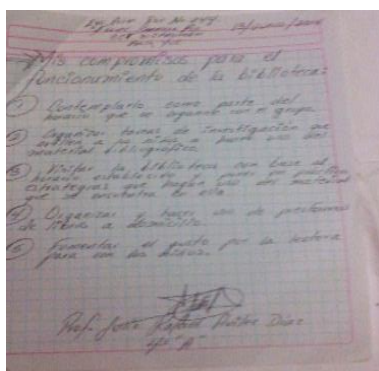 Mis compromisos para el
funcionamiento de la biblioteca:
① Contemplarlo como parte del
horario que se organice con el grupo.
② Organizar temas de investigación que
a los niños a hacer uso del
material bibliográfico.
③ Visitar la biblioteca con base al
horario establecido y poner en práctica
estrategias que hagan uso del material
que se encuentra en ella.
④ Organizar y hacer uso de préstamos
de libros a domicilio.
⑤ Fomentar el gusto por la lectura
para con los niños.
Prof. José Rafael Díaz
4º "A"